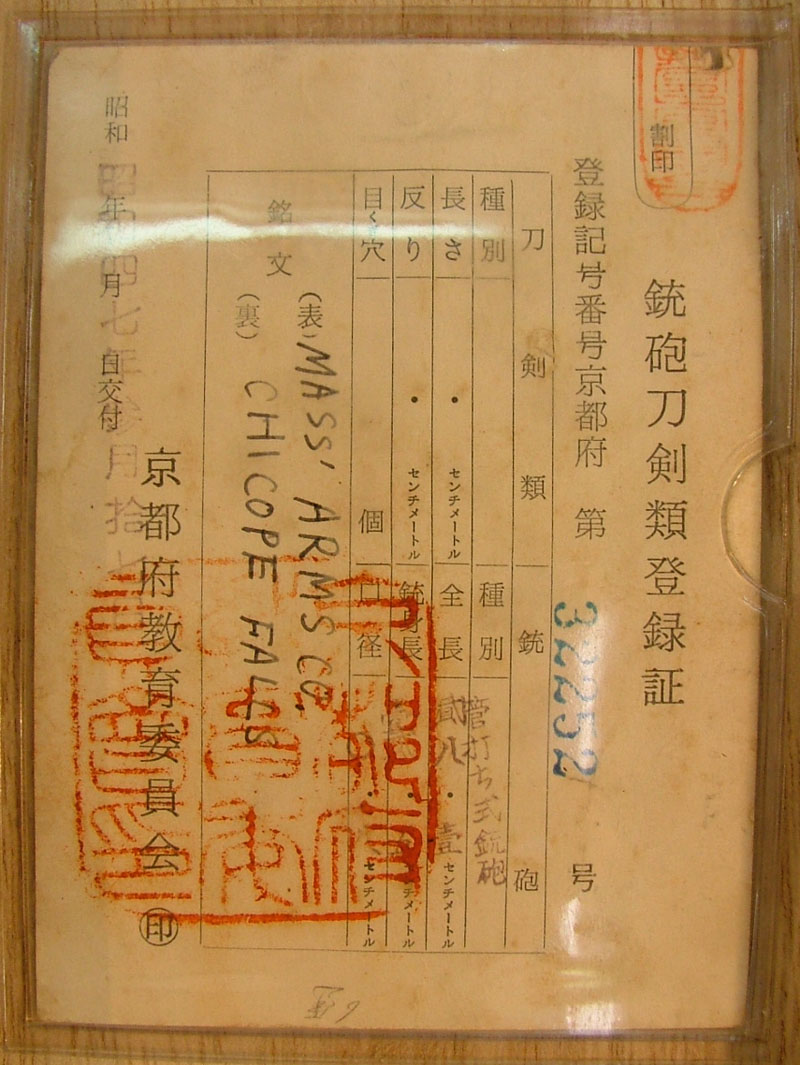 割印
銃砲刀剣類登録証
登録記号番号京都府 第 32252 号
刀剣類 銃砲
種別 種別 管打ち式銃砲
長さ ・ センチメートル 全長 貳八・壹 センチメートル
反り ・ センチメートル 銃身長 センチメートル
目くぎ穴 個 口径 ・ センチメートル
銘文
(表) MASS' ARMS CO.
(裏) CHICOPE FALLS
京都府教育委員会 ㊞
昭和 年 月 日交付
四七年 月拾七